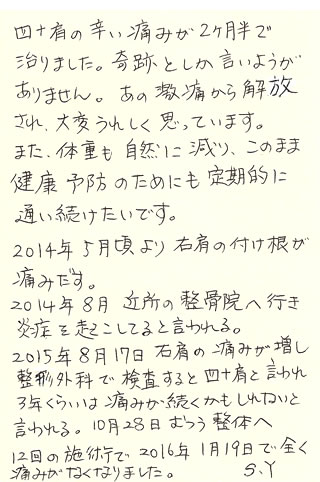 四十肩の辛い痛みが2ヶ月半で
治りました。奇跡としか言いようが
ありません。あの激痛から解放
され、大変うれしく思っています。
また、体重も自然に減り、このまま
健康予防のためにも定期的に
通い続けたいです。
2014年5月頃より右肩の付け根が
痛みだす。
2014年8月 近所の整骨院へ行き
炎症を起こしてると言われる。
2015年8月17日 右肩の痛みが増し
整形外科で検査すると四十肩と言われ
3年くらいは痛みが続くかもしれないと
言われる。10月28日むらう整体へ
12回の施術で2016年1月19日で全く
痛みがなくなりました。 S.Y